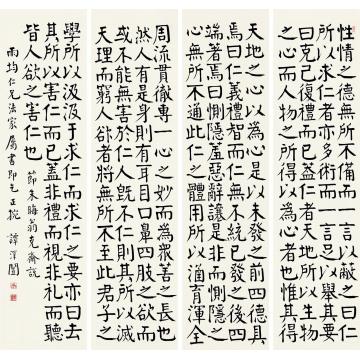 性情之德無所不備而一言足以盡其妙曰仁而已
所以求仁者亦多術而一言足以舉其要
曰克己復禮而已蓋仁者天地所以生物
之心而人物之所得以為心者也惟其得
天地之心以為心是以未發之前四德具
焉曰仁義禮智而仁無不統已發之後四
端著焉曰惻隱羞惡辭讓是非而惻隱之
心無所不通此仁之體用所以涵育渾全
周流貫徹專一心之妙而為眾善之長也
然人有是身則有耳目口鼻四肢之欲而
或不能無害於仁人既不仁則其所以滅
天理而窮人欲者將無所不至此君子之
學所以汲汲于求仁而求仁之要亦曰去
其所以害仁而已蓋非禮而視非禮而聽
皆人欲之害仁也
節朱晦翁克齋說
雨均仁兄法家屬書即乞正捥 譚澤闓